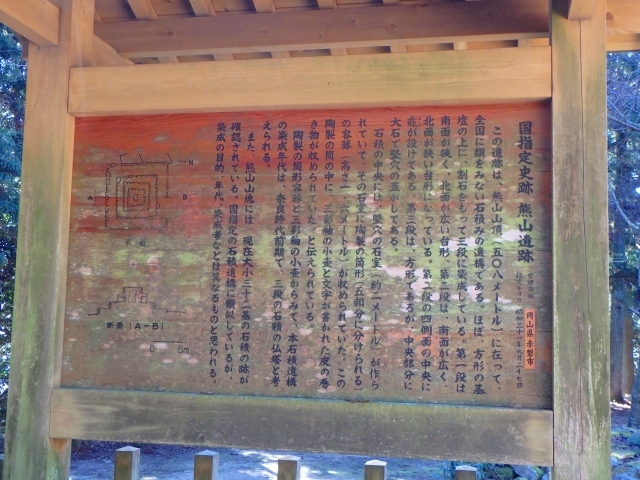 国指定史跡 熊山遺跡
岡山県赤磐市
この遺跡は、熊山山頂(五〇八メートル)に在って、
全国に類をみない石積みの遺構である。ほぼ、方形の基
壇の上に、割石をもって三段に築成している。第一段は
南面が狭く、北面が広い台形、第二段は、南面が広く、
北面が狭い台形になっている。第二段の四側面の中央に
龕が設けてある。第三段は、方形であるが、中央部分に
大石で竪穴の蓋がしてある。
石積の中央には、竪穴の石室(約二メートル)が作ら
れていて、その石室に陶製の筒形(五部分に分けられる)
の容器(高さ一・六メートル)が収められていた。この
陶製の筒の中に、三彩釉の小壺と文字が書かれた皮の巻
き物が収められていた、と伝えられている。
陶製の筒形容器と三彩釉の小壺からみて、本石積遺構
の築成年代は、奈良時代前期で、三段の石積の仏塔と考
えられる。
また、熊山山塊には、現在大小三十二基の石積の跡が
確認されている。国指定の石積遺構に類似しているが、
築成の目的、年代、築成者などは異なるものと思われる。
N
A
B
平面
断面(A-B)
0 5m